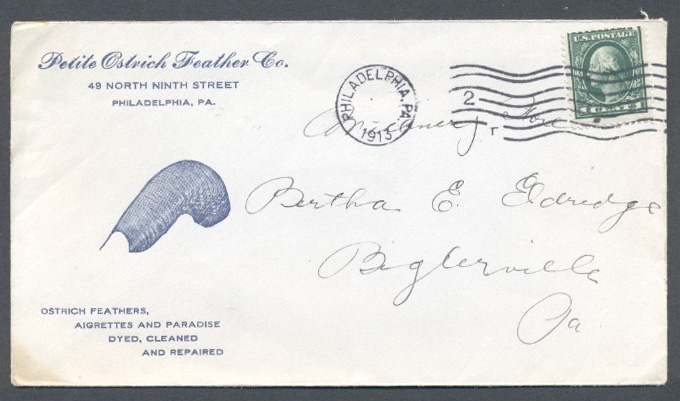 Petite Ostrich Feather Co.
49 NORTH NINTH STREET
PHILADELPHIA, PA.
PHILADELPHIA, PA.
1913
2
r
U.S. POSTAGE
1 CENT 1
Millinery Store
Bertha E. Eldredge
Biglerville
Pa
OSTRICH FEATHERS,
AIGRETTES AND PARADISE
DYED, CLEANED
AND REPAIRED